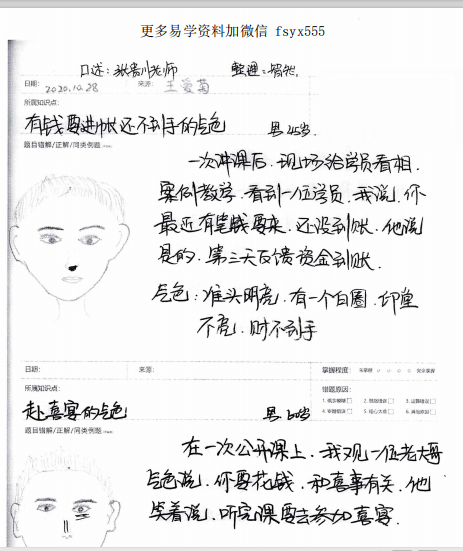 更多易学资料加微信 fsyx555
口述：张贵川老师 整理：
日期： 2020.10.28 来源： 王爱菊
所属知识点：
有钱要进帐还不到手的气色 男45岁.
题目错解/正解/同类例题
一次讲课后.现场给学员看相.
案例教学.看到一位学员.我说.你
最近有笔钱要来.还没到账.他说
是的.第三天反馈资金到账.
气色：准头明亮.有一个白圈.印堂
不亮.财不到手
日期： 来源： 掌握程度：
错题原因：
所属知识点：
赴喜宴的气色 男 60岁
题目错解/正解/同类例题
在一次公开课上.我观一位老大哥
气色说.你要花钱.和喜事有关.他
笑着说.听完课要去参加喜宴.